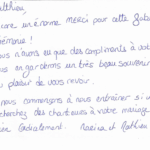 Matthieu
une énorme merci pour cette
Nous n'avons eu que des compliments à
en garderons un très beau souvenir
plaisir de vous revoir.
nous commençons à nous entraîner si
cherchez des chanteurs à votre mariage
Cordialement. Marine et Mathieu